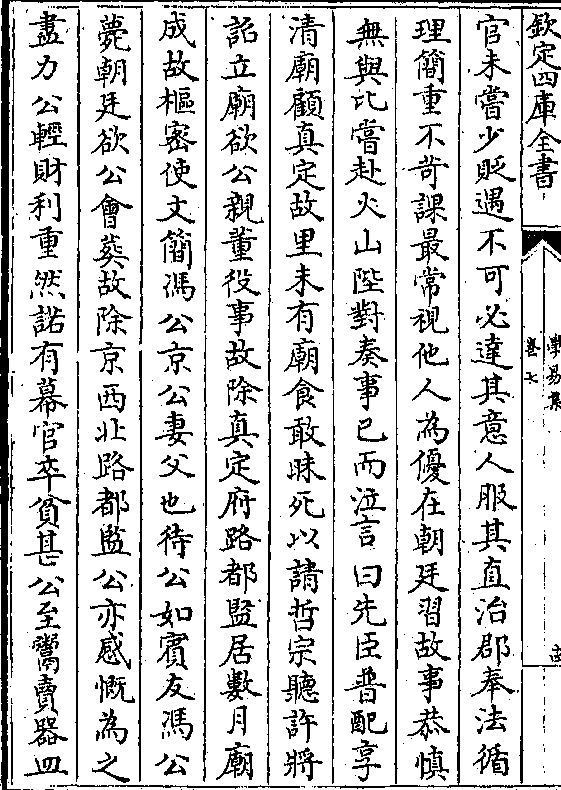 欽定四庫全書
學易集
卷七
官未嘗少貶遇不可必達其意人服其直治郡奉法循
理簡重不苛課最常視他人為優在朝廷習故事恭慎
無與比嘗赴火山陛對奏事已而泣言曰先臣普配享
清廟顧真定故里未有廟食敢昧死以請哲宗聽許將
詔立廟欲公親董役事故除真定府路都監居數月廟
成故樞密使文簡馮公京公妻父也待公如賓友馮公
薨朝廷欲公會葬故除京西北路都監公亦感慨為之
盡力公輕財利重然諾有幕官卒貧甚公至鬻賣器皿